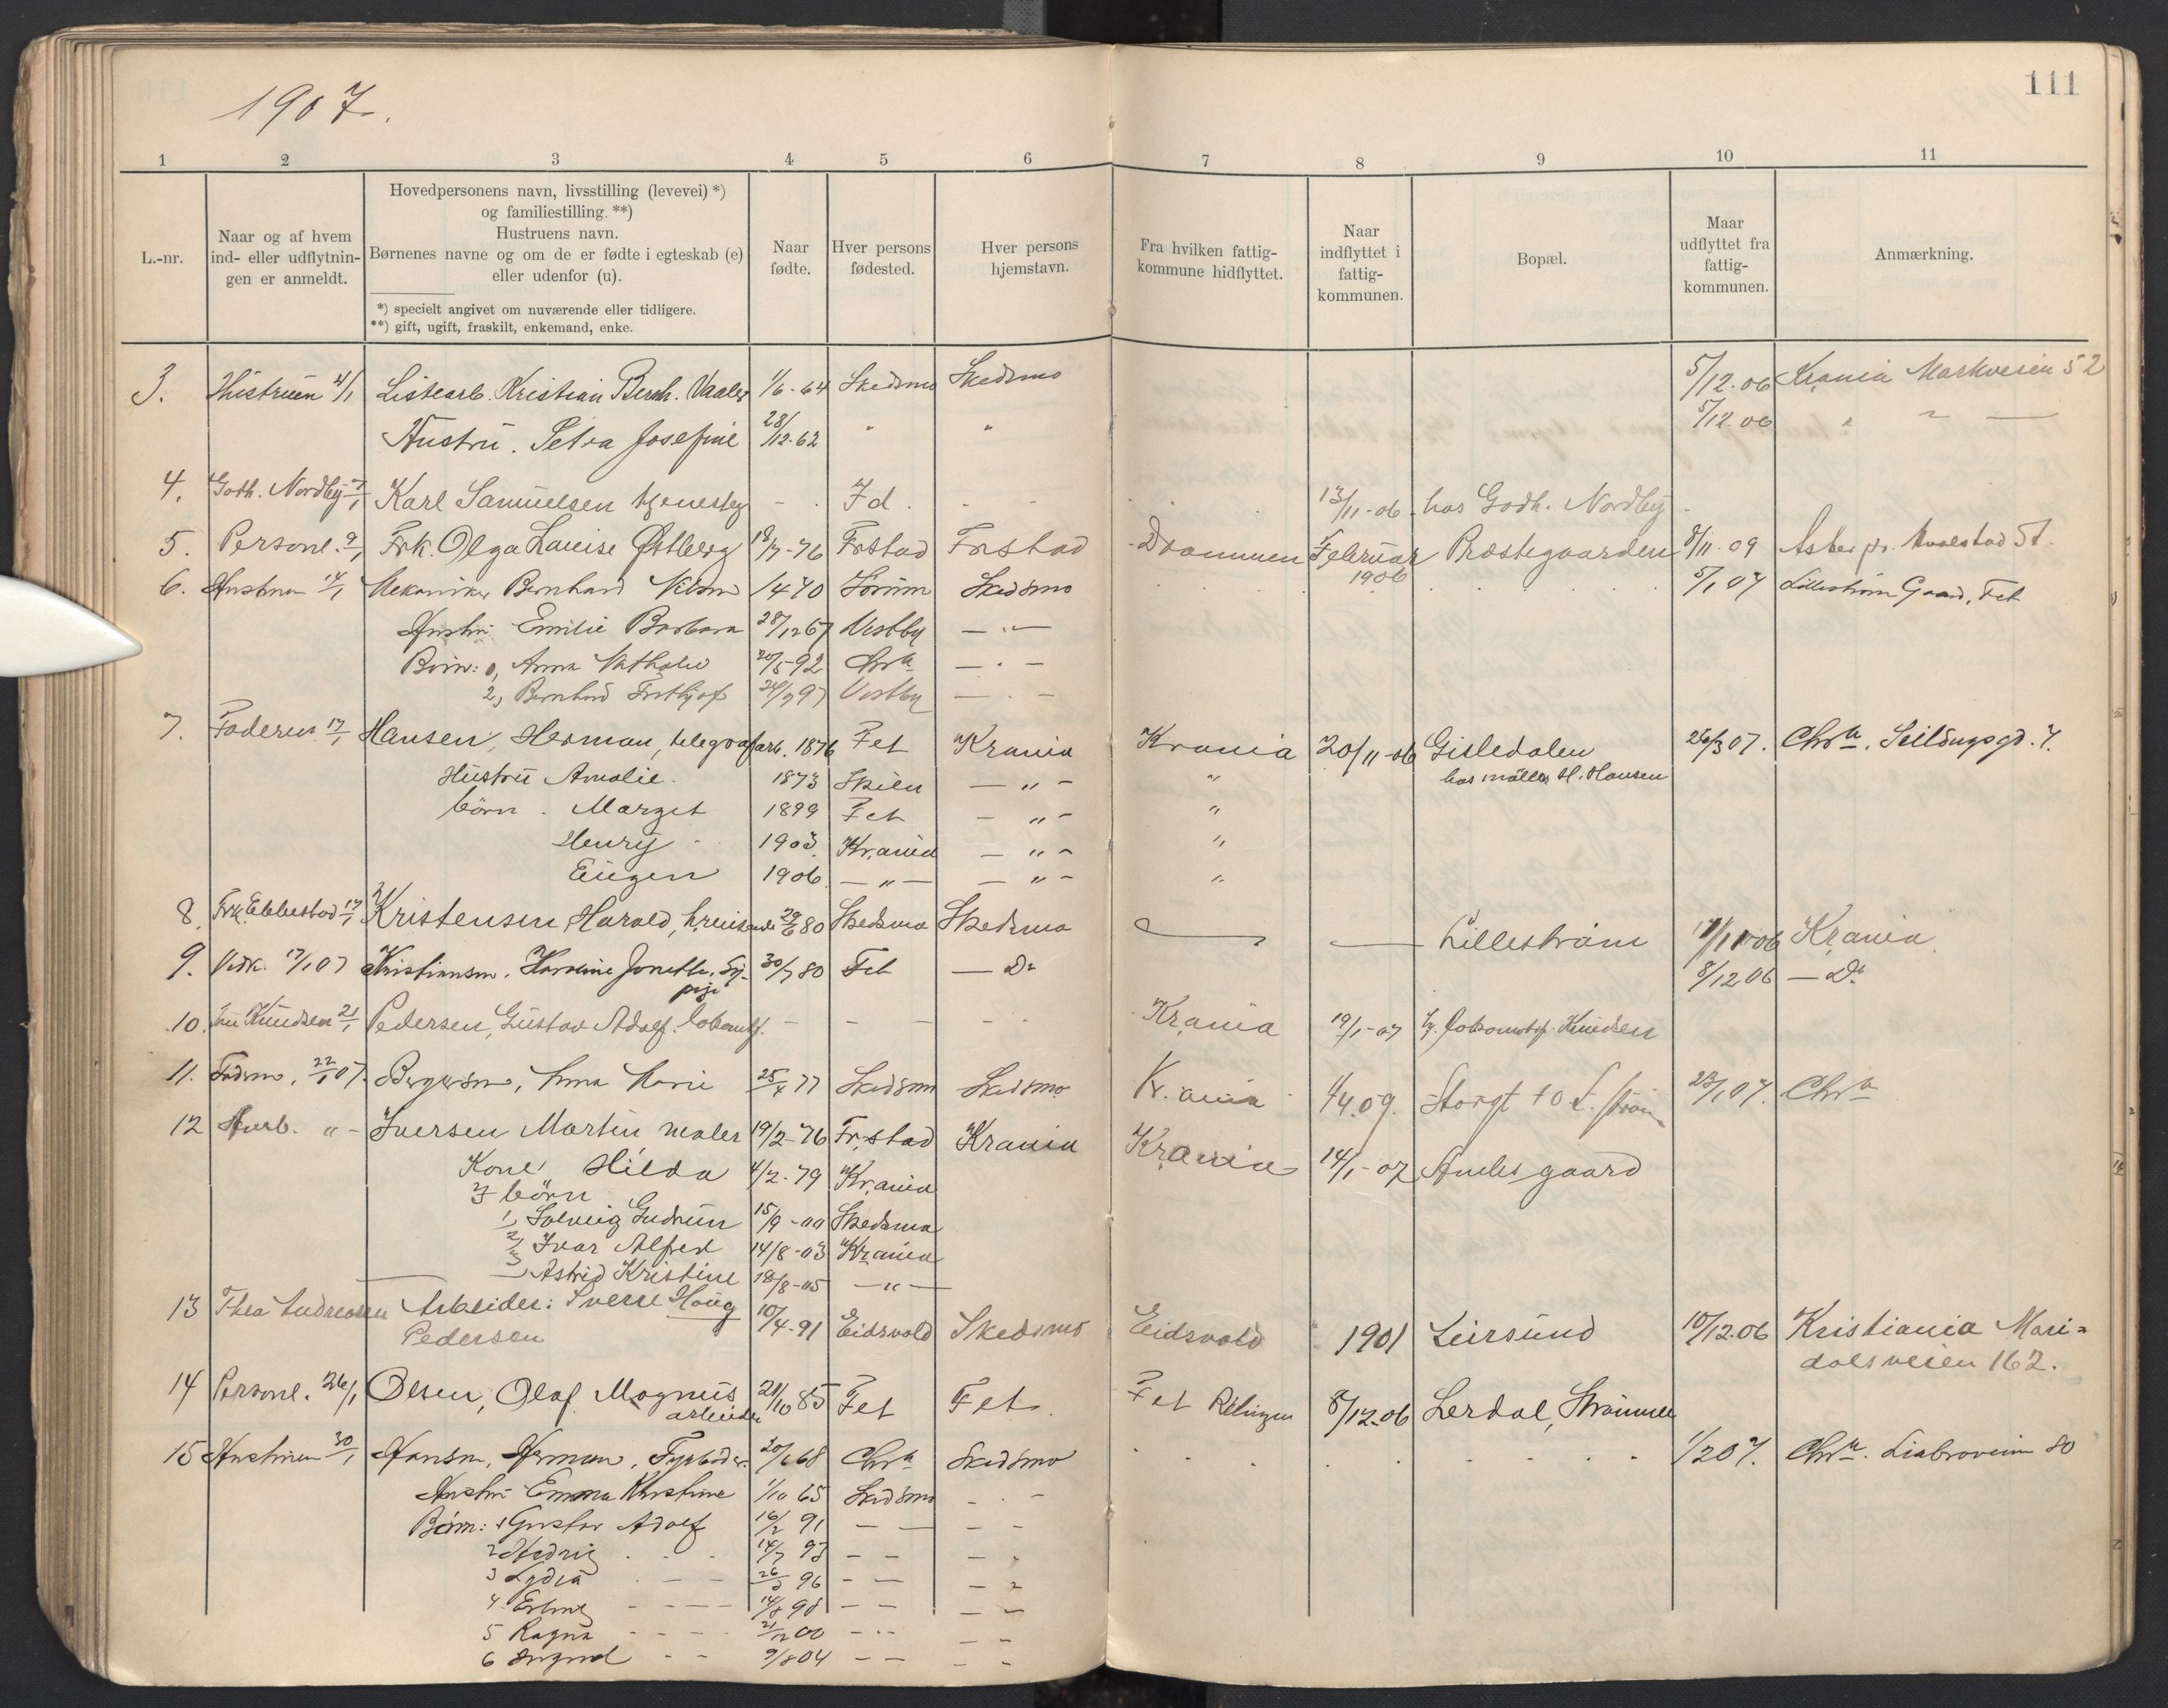 1907.
111
1 2 3 4 5 6 7 8 9 10 11
L.-nr.
Naar og af hvem
ind- eller udflytnin-
gen er anmeldt.
Hovedpersonens navn, livsstilling (levevei) *)
og familiestilling. **)
Hustruens navn.
Børnenes navne og om de er fødte i egteskab (e)
eller udenfor (u).
*) specielt angivet om nuværende eller tidligere.
**) gift, ugift, fraskilt, enkemand, enke.
Naar
fødte.
Hver persons
fødested.
Hver persons
hjemstavn.
Fra hvilken fattig-
kommune hidflyttet.
Naar
indflyttet i
fattig-
kommunen.
Bopæl.
Maar
udflyttet fra
fattig-
kommunen.
Anmærkning.
3. Hustruen 4/1 Listearb. Kristian Bernh. Vaaler 1/6-64 Skedsmo Skedsmo 5/12.06 Krania Markveien 52
Hustru. Petra Josefine 28/12-62 " " 5/12.06 " " —
4. Goth. Nordby 7/1 Karl Samuelsen tjenestg - . Id . . - 13/11-06 hos Godh. Nordby
5. Personl. 9/1 Frk. Olga Louise Østberg 18/7-76 Frstad Frstad Drammen Februar 1906 Præstegaarden 8/11.09 Asker pr. Hvalstad St.
6. Hustruen 14/1 Mekaniker Bernhard Nilsen 1470 Sørum Skedsmo 5/1 07 Lillestrøm Gaard, Fet
Hustru Emilie Barbara 28/12 67 Vestby — " —
Børn: 1, Anna Nathalie 20/5 92 Chra — . —
2, Bernhard Fritjof 24/9 97 Vestby — . —
7. Faderen 17/1 Hansen, Herman, telegrafarb. 1876 Fet Krania Krania 20/11-06 Gisledalen 26/3 07. Chra, Seildugsgd. 7.
hos møller H. Hansen
Hustru Amalie. 1873 Skien — " — "
børn . Margit 1899 Fet — " — "
Henry 1903 Krania — " — "
Eugen 1906 — " — — " — "
8. Frk. Ebbestad 17/1 Kristensen, Harald, 29/6 80 Skedsmo Skedsmo — — Lillestrøm 17/11 06 Krania
9. Vidk. 17/1 07 Kristiansen, Karoline Jonette, Sy- 30/7 80 Fet — Do 8/12 06 — Do.
pige
10. Fru Knudsen 21/1 Pedersen, Gustav Adolf. - - - - - Krania 19/1-07 Knudsen
11. Faderen, 22/1 07. Bergersen, Anna Marie 25/4 77 Skedsmo Skedsmo Kr.ania 1/4.09. Storgt 10 L. strøm 23/1 07. Chra
12 " - Iversen Martin maler 19/2-76 Fr.stad Krania Krania 14/1-07 gaard
Kone Hilda 4/2-79 Kr,ania
3 børn
1, Solveig Gudrun 15/9-00 Skedsmo
2, Ivar Alfred 14/8-03 Krania
3 Astrid Kristine 18/8-05 — " —
13 Thea Andreasen Arbeider: Sverre Haug 10/4-91 Eidsvold Skedsmo Eidsvold 1901 Leirsund 10/12.06 Kristiania Mari-
Pedersen dalsveien 162.
14 Personl. 26/1 Olsen, Olaf Magnus 21/10 85 Fet Fet. Fet Rælingen 8/12-06 Lerdal, Strømmen
arbeider
15 Hustruen 30/1 Hansen, Herman, 20/6 68 Chra Skedsmo 1/2 07. Chra. Liabroveien 80
Hustru Emma Kristine 1/10 65 Skedsmo - . -
Børn: 1 Gustav Adolf 16/2 91 — — — —
2 Hedvig 14/7 93 — — — "
3 Lydia 26/5 96 — — — "
4 Erling 14/8 98 — — — —
5 Ragna 21/12 00 — — — —
6 Ingrid 9/8 04 — — — —